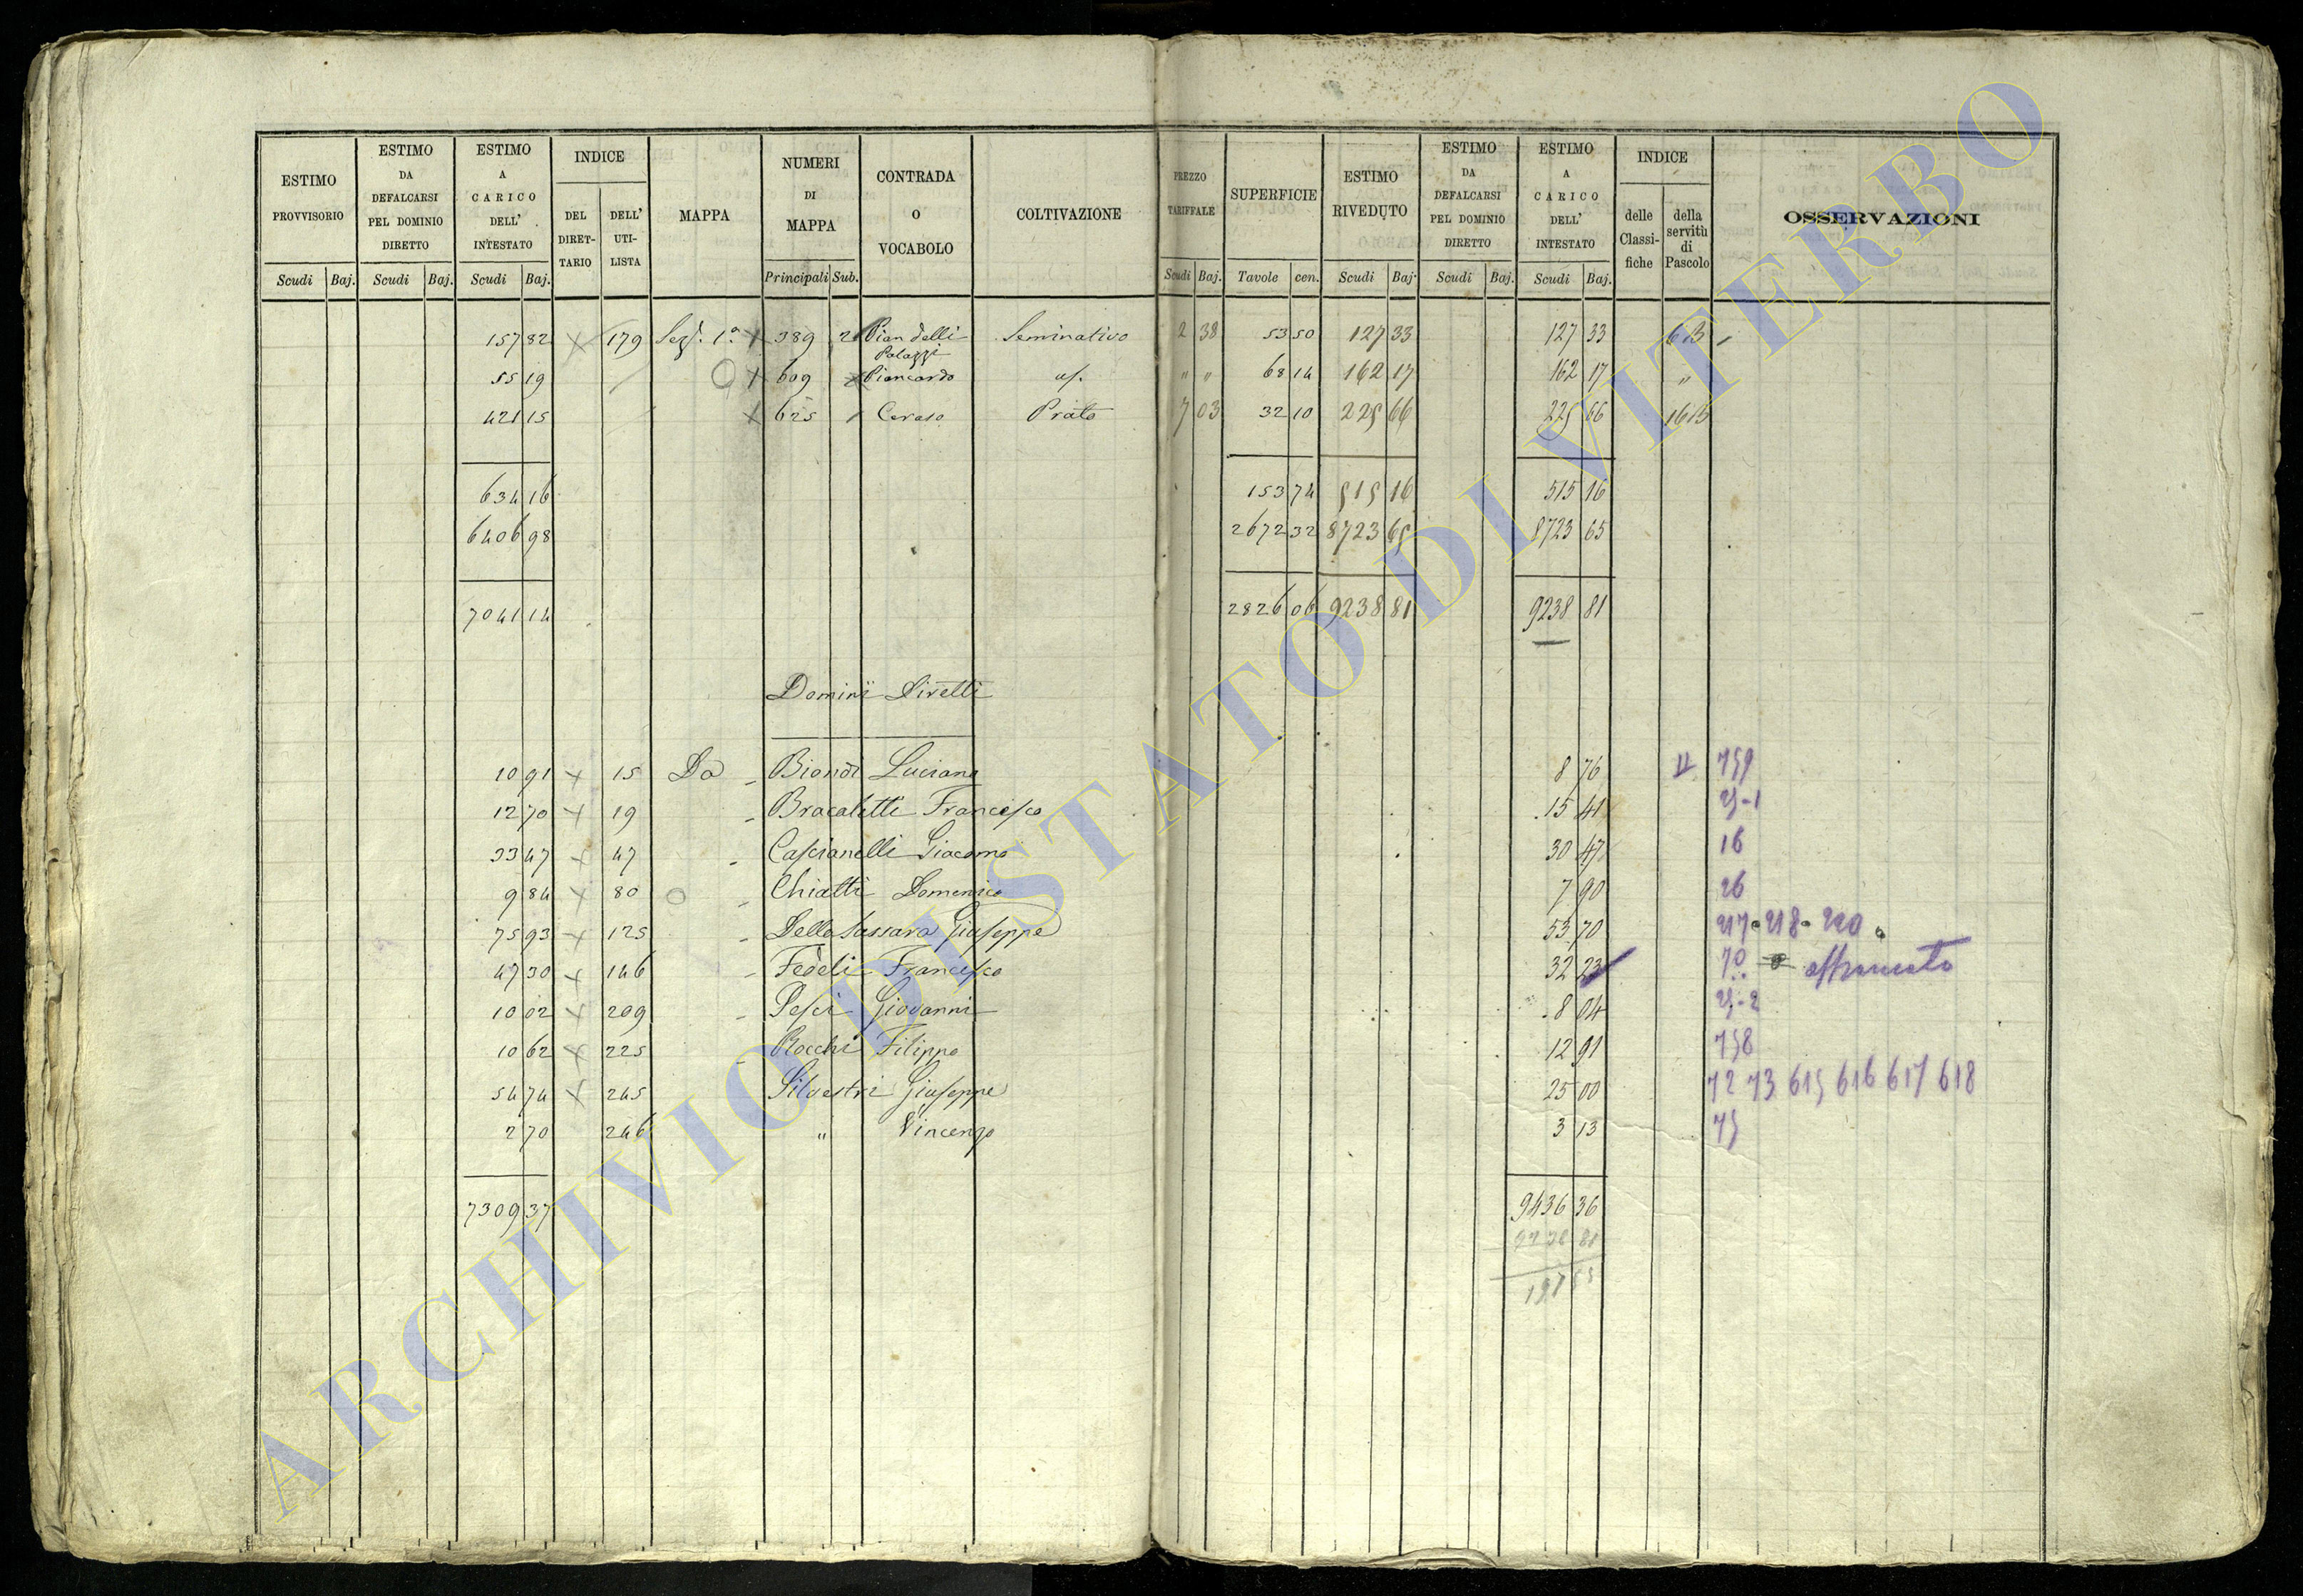 ESTIMO PROVVISORIO
ESTIMO DA DEFALCARSI PEL DOMINIO DIRETTO
ESTIMO A CARICO DELL' INTESTATO
INDICE
DEL DIRET-TARIO
DELL' UTI-LISTA
MAPPA
NUMERI DI MAPPA
CONTRADA O VOCABOLO
COLTIVAZIONE
PREZZO TARIFFALE
SUPERFICIE
ESTIMO RIVEDUTO
ESTIMO DA DEFALCARSI PEL DOMINIO DIRETTO
ESTIMO A CARICO DELL' INTESTATO
INDICE
delle Classi-fiche
della servitù di Pascolo
OSSERVAZIONI
Scudi Baj. Scudi Baj. Scudi Baj. Principali Sub. Scudi Baj. Tavole cen. Scudi Baj. Scudi Baj. Scudi Baj.
157 82 X 179 Sez. 1a X 389 2 Pian delli Palazzi Seminativo 2 38 53 50 127 33 127 33 6 B
55 19 X 609 Piancardo " " 68 14 162 17 162 17 "
421 15 X 625 Ceraso Prato 7 03 32 10 225 66 225 66 16 B
634 16 153 74 515 16 515 16
6406 98 2672 32 8723 65 8723 65
7041 14 2826 06 9238 81 9238 81
Dominii Diretti
10 91 X 15 Da Biondi Luciano 8 76 759
12 70 X 19 Bracaletti Francesco 15 41 25-1
33 47 X 47 Cascianelli Giacomo 30 47 16
9 84 X 80 Chiatti Domenico 7 90 26
75 93 X 125 Della Sassara Giuseppe 53 70 217-218-220
47 30 X 146 Fedeli Francesco 32 23 70 affrancato
10 02 X 209 Pesci Giovanni 8 04 25-2
10 62 X 225 Rocchi Filippo 12 91 758
54 74 X 245 Silvestri Giuseppe 25 00 72 73 615 616 617 618
2 70 246 " Vincenzo 3 13 75
7309 37 9436 36
9238 81
197 55
ARCHIVIO DI STATO DI VITERBO